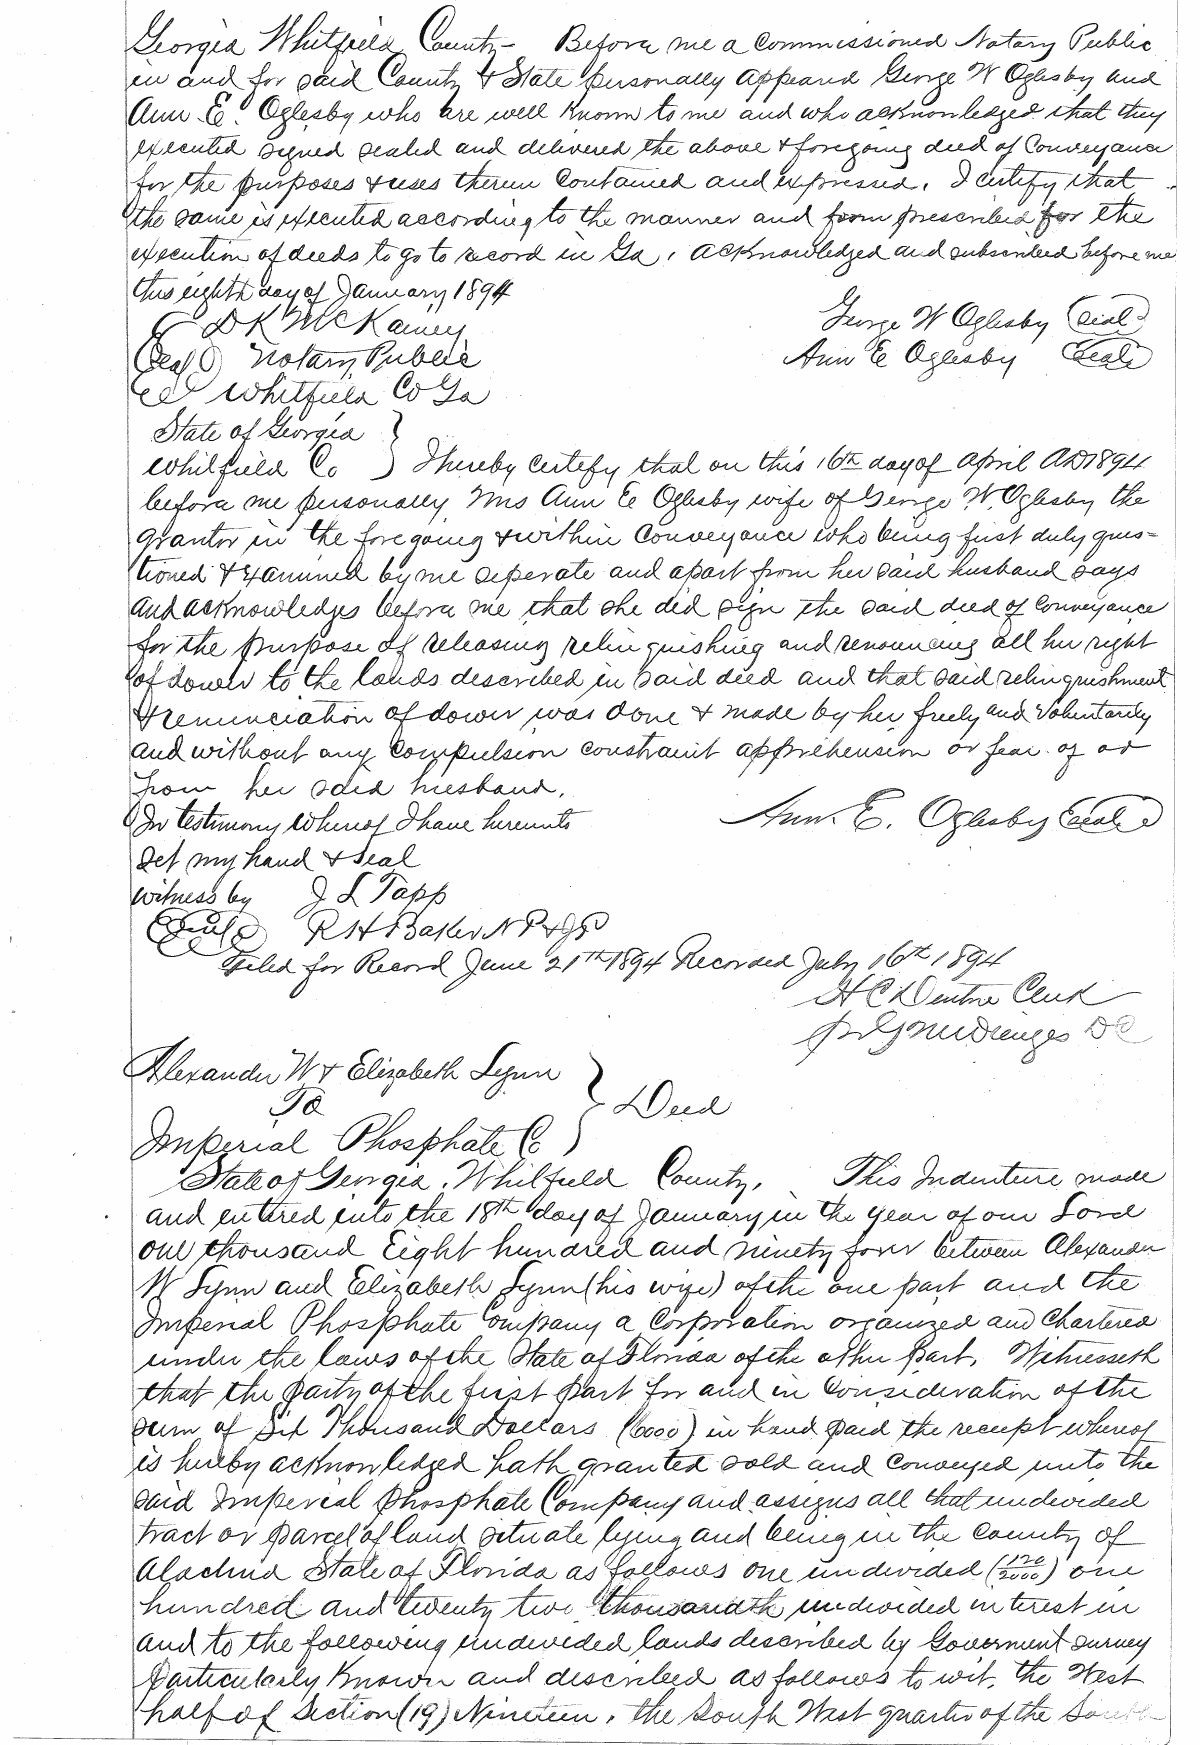 Georgia Whitfield County - Before me a Commissioned Notary Public
in and for said County & State personally appeared George W Oglesby and
Ann E. Oglesby who are well known to me and who acknowledged that they
executed signed sealed and delivered the above & foregoing deed of Conveyance
for the purposes & uses therein Contained and expressed. I certify that
the same is executed according to the manner and from prescribed for the
execution of deeds to go to record in Ga, acknowledged and subscribed before me
this eighth day of January 1894
George W Oglesby (seal)
D K McKamey
(Seal) Notary Public
Ann E Oglesby (Seal)
Whitfield Co Ga
State of Georgia }
Whitfield Co } I hereby certify that on this 16th day of April AD 1894
before me personally Mrs Ann E Oglesby wife of George W. Oglesby the
grantor in the foregoing & within Conveyance who being first duly ques-
tioned & examined by me seperate and apart from her said husband says
and acknowledges before me that she did sign the said deed of Conveyance
for the purpose of releasing relinquishing and renouncing all her right
of dower to the lands described in said deed and that said relinquishment
& renunciation of dower was done & made by her freely and Voluntarily
and without any Compulsion constraint apprehension or fear of or
from her said husband.
In testimony whereof I have hereunto
Ann. E. Oglesby (seal)
set my hand & seal
witness by J L Tapp
(Seal) R H Baker N P & J P
Filed for Record June 21st 1894 Recorded July 16th 1894
H C Denton Clerk
D C
Alexander W & Elizabeth Lynn }
To } Deed
Imperial Phosphate Co }
State of Georgia, Whitfield County, This Indenture made
and entered into the 18th day of January in the year of our Lord
one thousand Eight hundred and ninety four between Alexander
W Lynn and Elizabeth Lynn (his wife) of the one part and the
Imperial Phosphate Company a Corporation organized and Chartered
under the laws of the State of Florida of the other part. Witnesseth
that the party of the first part for and in Consideration of the
sum of Six Thousand Dollars (6000) in hand paid the receipt whereof
is hereby acknowledged hath granted sold and conveyed unto the
said Imperial Phosphate Company and assigns all that undivided
tract or parcel of land situate lying and being in the county of
Alachua State of Florida as follows one undivided (120/2000) one
hundred and twenty two thousandth undivided interest in
and to the following undivided lands described by Goverment survey
particularly known and described as follows to wit, the West
half of Section (19) Nineteen, the South West quarter of the South